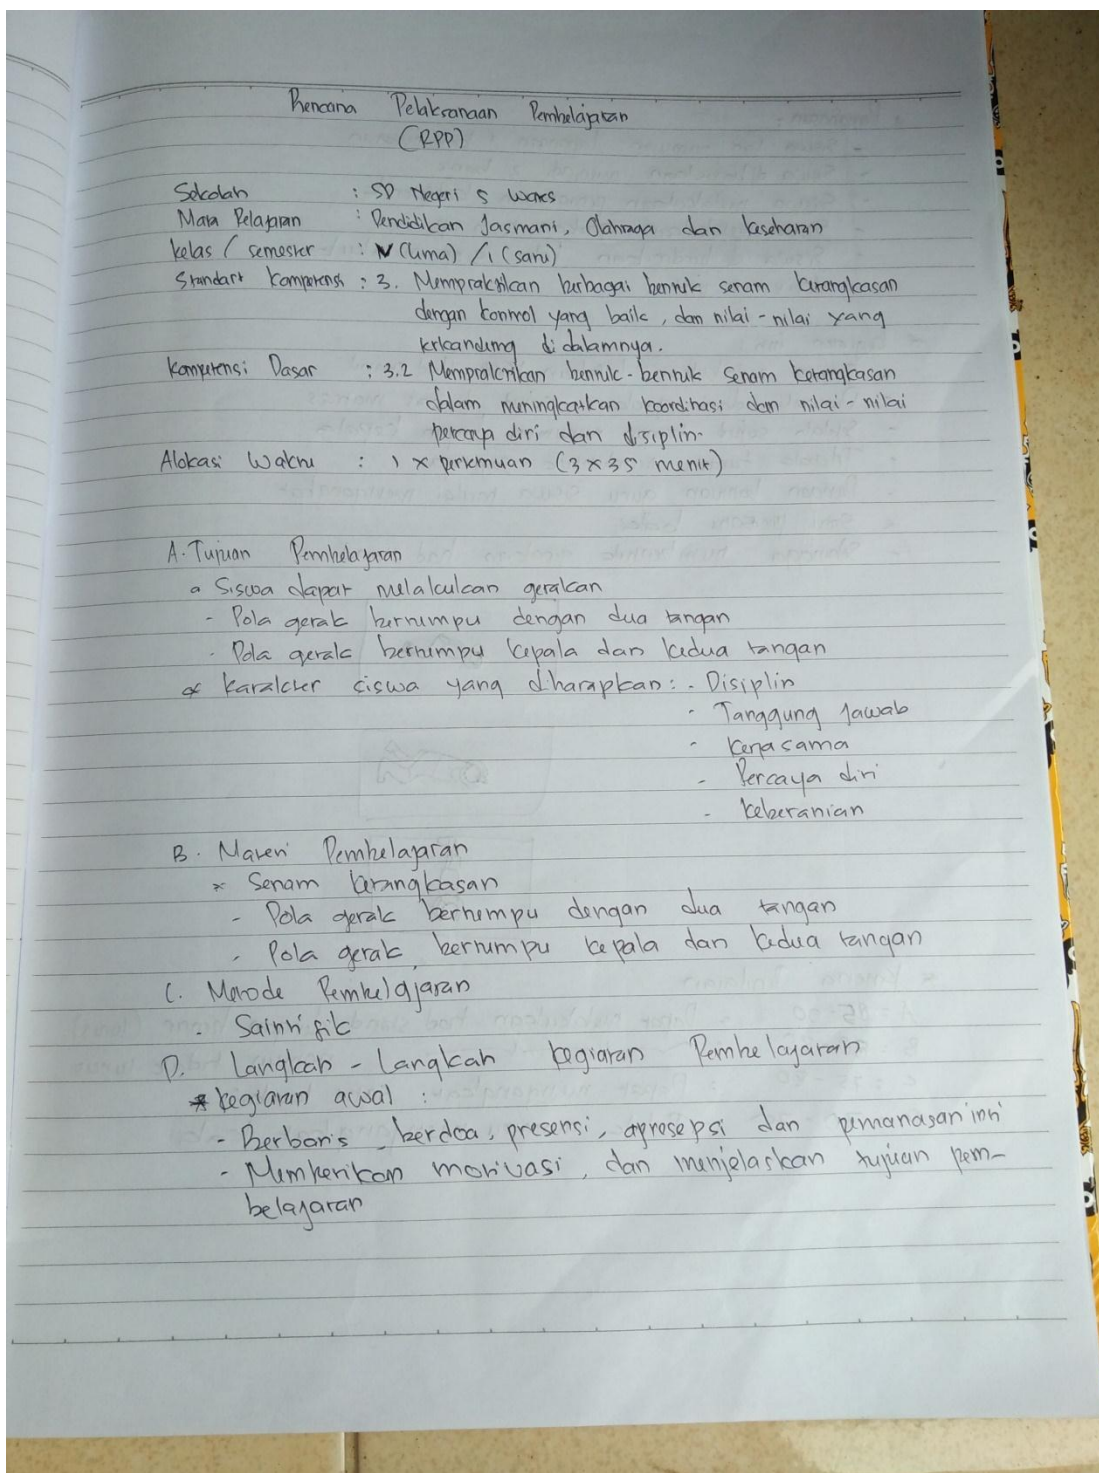 Rencana Pelaksanaan Pembelajaran
(RPP)
Sekolah : SD Negeri 5 Wates
Mata Pelajaran : Pendidikan Jasmani, Olahraga dan kesehatan
kelas / semester : V (lima) / 1 (satu)
Standart Kompetensi : 3. Mempraktikan berbagai bentuk senam ketangkasan
dengan kontrol yang baik, dan nilai-nilai yang
terkandung di dalamnya.
Kompetensi Dasar : 3.2 Mempraktikan bentuk-bentuk senam ketangkasan
dalam meningkatkan koordinasi dan nilai-nilai
percaya diri dan disiplin.
Alokasi Waktu : 1 x pertemuan (3x35 menit)
A. Tujuan Pembelajaran
Siswa dapat melakukan gerakan
- Pola gerak bertumpu dengan dua tangan
- Pola gerak bertumpu kepala dan kedua tangan
* Karakter siswa yang diharapkan : - Disiplin
- Tanggung Jawab
- Kerja sama
- Percaya diri
- keberanian
B. Materi Pembelajaran
* Senam ketangkasan
- Pola gerak bertumpu dengan dua tangan
- Pola gerak bertumpu kepala dan kedua tangan
C. Metode Pembelajaran
- Saintifik
D. Langkah - Langkah kegiatan Pembelajaran
* kegiatan awal :
- Berbaris, berdoa, presensi, apresepsi dan pemanasan inti
- Memberikan motivasi, dan menjelaskan tujuan pem-
belajaran